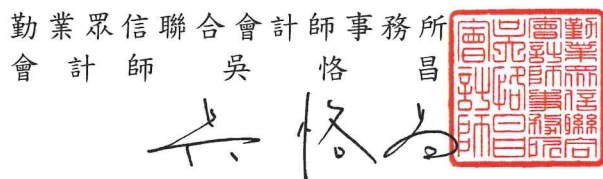 勤業眾信聯合會計師事務所
會計師 吳恪昌
吳恪昌
勤業眾信聯合
會計師事務所
吳恪昌
會計師